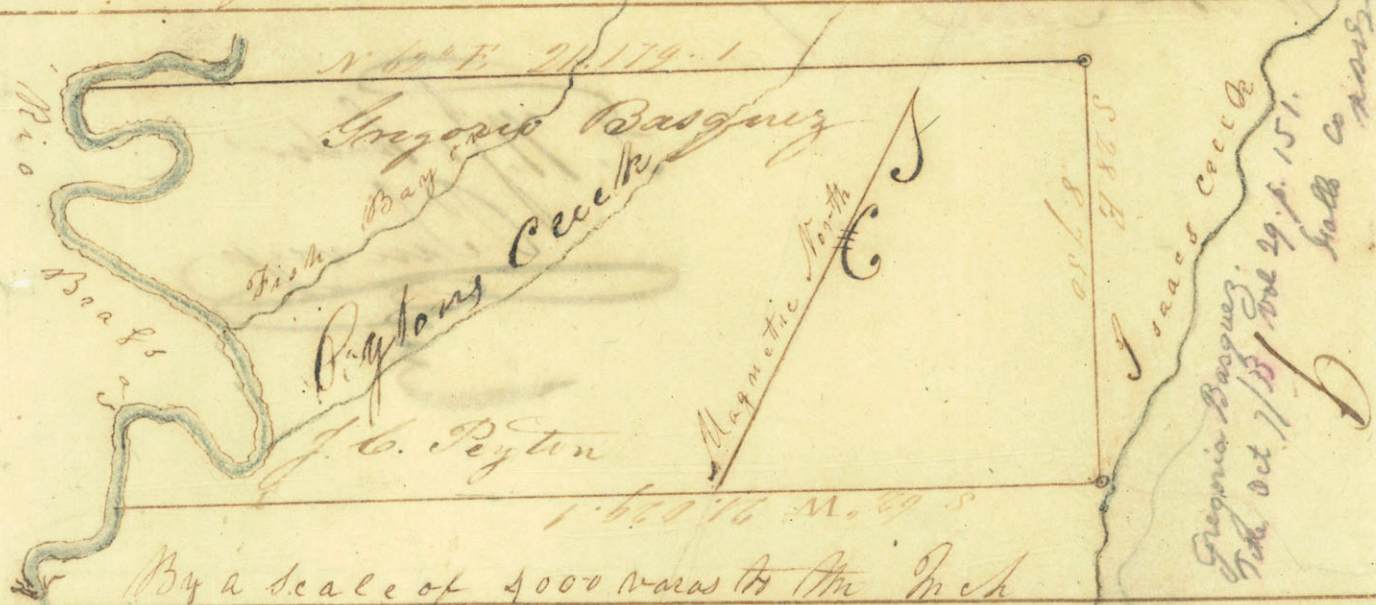 N 62° E 21.179.1
Rio Brasos
Gregorio Basquez
Fish Bayou
Peytons Creek
J. C. Peyton
Magnetic North
S 28 E
8750
Isaacs Creek
S 62° W 21.029.1
By a Scale of 4000 varas to the Inch
Gregorio Basquez
Title Oct 7/33 Vol 29. p. 151.
Falls Co